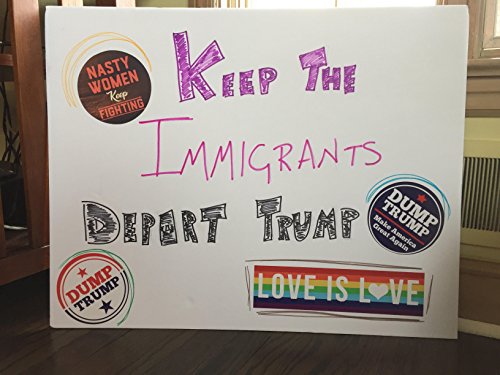 NASTY
WOMEN
Keep
FIGHTING
KEEP THE
IMMIGRANTS
DEPORT TRUMP
DUMP
TRUMP
Make America
Great Again
DUMP
TRUMP
LOVE IS L♥VE